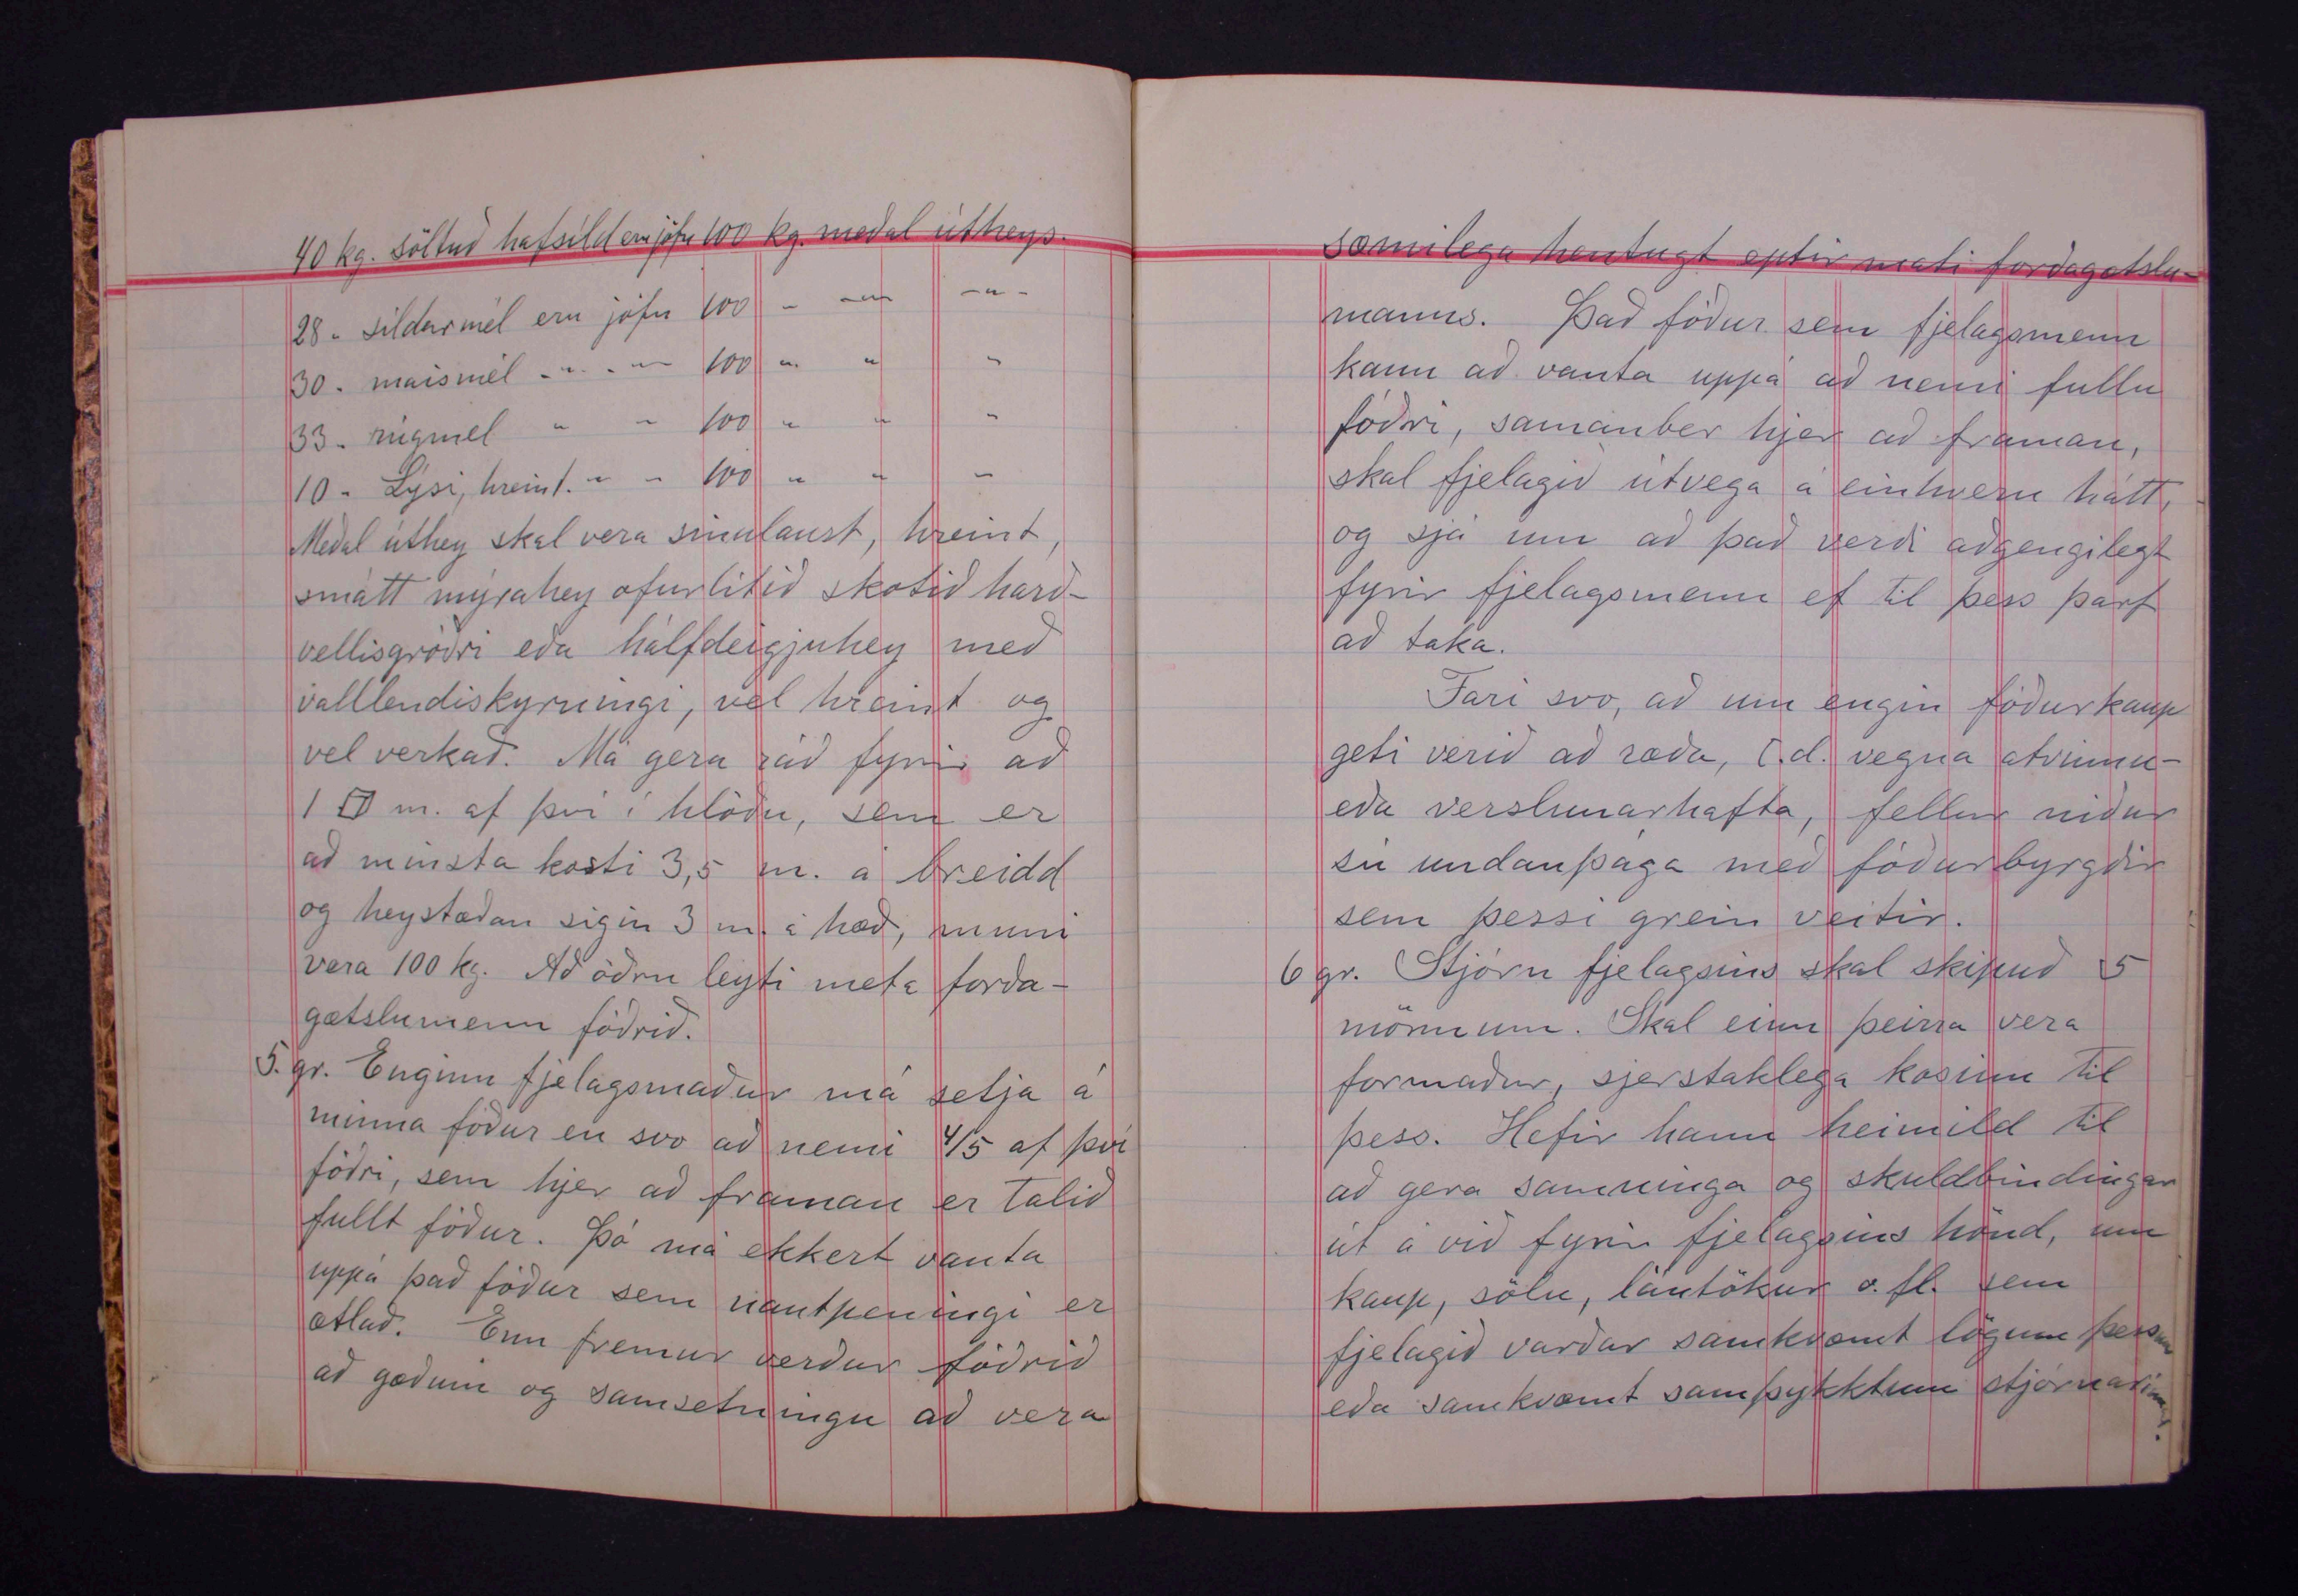 40 kg. söltuð hafsíld eru jöfn 100 kg. meðal útheys.
28 - síldarmél eru jöfn 100 - -"- -"-
30 - maismél -"- -"- 100 " " "
33 - rúgmél " " 100 " " "
10 - Lýsi, hreint. " - 100 " " "
Meðal úthey skal vera sinulaust, hreint,
smátt mýrahey ofurlítið skotið harð-
vellisgróðri eða hálfdeigjuhey með
valllendiskyrningi, vel hreint og
vel verkað. Má gera ráð fyrir að
1 □ m. af því í hlöðu, sem er
að minsta kosti 3,5 m. á breidd
og heystæðan sigin 3 m. á hæð, muni
vera 100 kg. Að öðru leyti meta forða-
gætslumenn fóðrið.
5. gr. Enginn fjelagsmaður má setja á
minna fóður en svo að nemi 4/5 af því
fóðri, sem hjer að framan er talið
fullt fóður. Þó má ekkert vanta
uppá það fóður sem nautpeningi er
ætlað. Enn fremur verður fóðrið
að gæðum og samsetningu að vera
sæmilega hentugt eptir mati forðagætslu-
manns. Það fóður sem fjelagsmenn
kann að vanta uppá að nemi fullu
fóðri, samanber hjer að framan,
skal fjelagið útvega á einhvern hátt,
og sjá um að það verði aðgengilegt
fyrir fjelagsmenn ef til þess þarf
að taka.
Fari svo, að um engin fóðurkaup
geti verið að ræða, t.d. vegna atvinnu-
eða verslunarhafta, fellur niður
sú undanþága með fóðurbyrgðir
sem þessi grein veitir.
6 gr. Stjórn fjelagsins skal skipuð 5
mönnum. Skal einn þeirra vera
formaður, sjerstaklega kosinn til
þess. Hefir hann heimild til
að gera samninga og skuldbindingar
út á við fyrir fjelagsins hönd, um
kaup, sölu, lántökur o.fl. sem
fjelagið varðar samkvæmt lögum þessum
eða samkvæmt samþykktum stjórnarinnar.